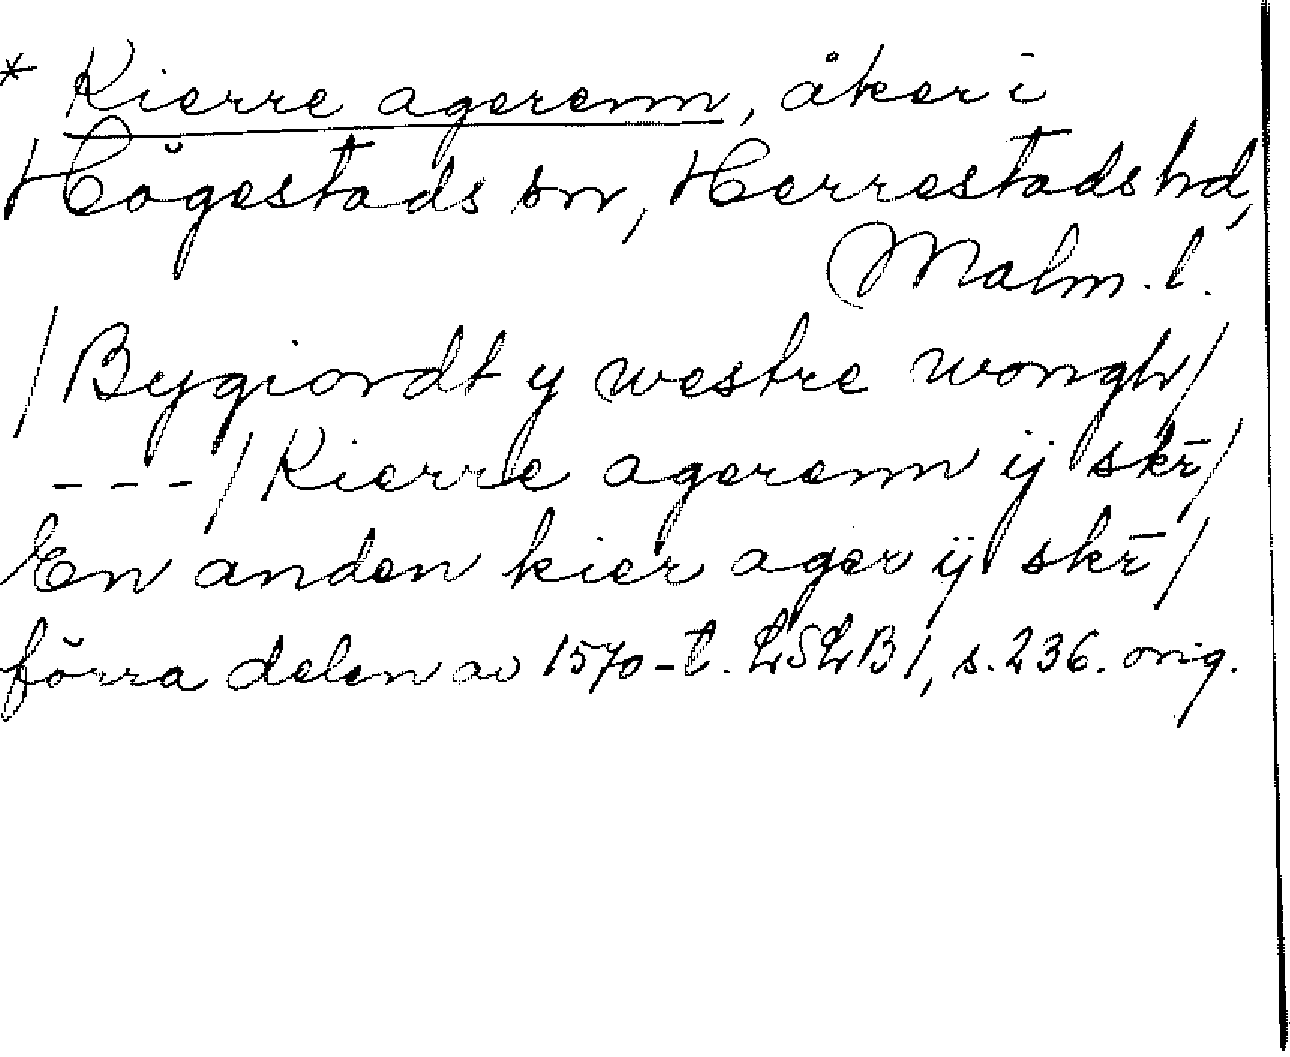 * Kierre agerenn, åker i
Högestads sn, Herrestads hd,
Malm. l.
/Bygiordt y westre wongh/
---/Kierre agerenn ij skr̄/
En anden kier ager ij skr̄/
förra delen av 1570-t. LSLB 1, s. 236. orig.